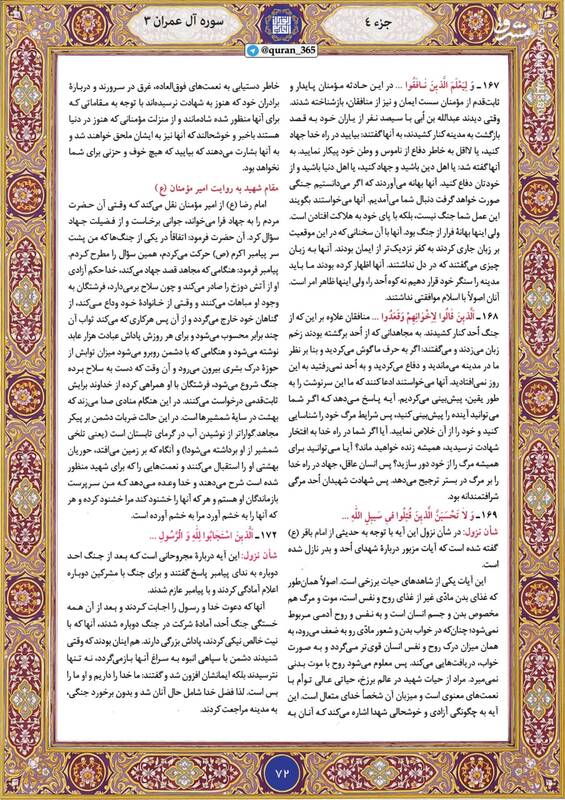 جزء ٤
سوره آل عمران ٣
@quran_365
مشرق
١٦٧ـ وَ لِيَعْلَمَ الَّذِينَ نَافَقُوا ... در این حادثه مؤمنان پایدار و
ثابت‌قدم از مؤمنان سست ایمان و نیز از منافقان، بازشناخته شدند.
وقتی دیدند عبدالله بن اُبی با سیصد نفر از یاران خود به قصد
بازگشت به مدینه کنار کشیدند، به آنها گفتند: بیایید در راه خدا جهاد
کنید، یا لااقل به خاطر دفاع از ناموس و وطن خود پیکار نمایید. به
آنها گفته شد: یا اهل دین باشید و جهاد کنید، یا اهل دنیا باشید و از
خودتان دفاع کنید. آنها بهانه می‌آوردند که اگر می‌دانستیم جنگی
صورت خواهد گرفت دنبال شما می‌آمدیم. آنها می‌خواستند بگویند
این عمل شما جنگ نیست، بلکه با پای خود به هلاکت افتادن است.
ولی اینها بهانهٔ فرار از جنگ بود. آنها با آن سخنانی که در این موقعیت
بر زبان جاری کردند به کفر نزدیک‌تر از ایمان بودند. آنها به زبان
چیزی می‌گفتند که در دل نداشتند. آنها اظهار کرده بودند ما باید
مدینه را سنگر خود قرار دهیم نه کوه اُحد را، ولی اینها ظاهر امر است.
آنان اصولاً با اسلام موافقتی نداشتند.
١٦٨ـ الَّذِينَ قَالُوا لِإِخْوَانِهِمْ وَقَعَدُوا ... منافقان علاوه بر این که از
جنگ اُحد کنار کشیدند، به مجاهدانی که از اُحد برگشته بودند زخم
زبان می‌زدند و می‌گفتند: اگر به حرف ما گوش می‌کردید و بنا بر نظر
ما در مدینه می‌ماندید و دفاع می‌کردید و به اُحد نمی‌رفتید به این
روز نمی‌افتادید. آنها می‌خواستند ادعا کنند که ما این سرنوشت را به
طور یقین، پیش‌بینی می‌کردیم. آیه پاسخ می‌دهد که اگر شما
می‌توانید آینده را پیش‌بینی کنید، پس شرایط مرگ خود را شناسایی
کنید و خود را از آن خلاص نمایید. آیا اگر شما در راه خدا به افتخار
شهادت نرسیدید، همیشه زنده خواهید ماند؟ آیا می‌توانید برای
همیشه مرگ را از خود دور سازید؟ پس انسان عاقل، جهاد در راه خدا
را بر مرگ در بستر ترجیح می‌دهد. پس شهادت شهیدان اُحد مرگی
شرافتمندانه بود.
١٦٩ـ وَ لَا تَحْسَبَنَّ الَّذِينَ قُتِلُوا فِي سَبِيلِ اللَّهِ ...
شأن نزول: در شأن نزول این آیه با توجه به حدیثی از امام باقر (ع)
گفته شده است که آیات مزبور دربارهٔ شهدای اُحد و بدر نازل شده
است.
این آیات یکی از شاهدهای حیات برزخی است. اصولاً همان‌طور
که غذای بدن مادّی غیر از غذای روح و نفس است، موت و مرگ هم
مخصوص بدن و جسم انسان است و به نفس و روح آدمی مربوط
نمی‌شود؛ چنان‌که در خواب بدن و شعور مادّی رو به ضعف می‌رود، به
همان میزان درک روح و نفس انسان قوی‌تر می‌گردد و به صورت
خواب، دریافت‌هایی می‌کند. پس معلوم می‌شود روح با موت بدنی
نمی‌میرد. مراد از حیات شهید در عالم برزخ، حیاتی عالی توأم با
نعمت‌های معنوی است و میزبان آن شخصاً خدای متعال است. این
آیه به چگونگی آزادی و خوشحالی شهدا اشاره می‌کند که آنان به
خاطر دستیابی به نعمت‌های فوق‌العاده، غرق در سرورند و دربارهٔ
برادران خود که هنوز به شهادت نرسیده‌اند با توجه به مقاماتی که
برای آنها منظور شده شادمانند و از منزلت مؤمنانی که هنوز در دنیا
هستند باخبر و خوشحالند که آنها نیز به ایشان ملحق خواهند شد و
به آنها بشارت می‌دهند که بیایید که هیچ خوف و حزنی برای شما
نخواهد بود.
مقام شهید به روایت امیر مؤمنان (ع)
امام رضا (ع) از امیر مؤمنان نقل می‌کند که وقتی آن حضرت
مردم را به جهاد فرا می‌خواند، جوانی برخاست و از فضیلت جهاد
سؤال کرد. آن حضرت فرمود: اتفاقاً در یکی از جنگ‌ها که من پشت
سر پیامبر اکرم (ص) حرکت می‌کردم، همین سؤال را مطرح کردم.
پیامبر فرمود: هنگامی که مجاهد قصد جهاد می‌کند، خدا حکم آزادی
او از آتش دوزخ را صادر می‌کند و چون سلاح برمی‌دارد، فرشتگان به
وجود او مباهات می‌کنند و وقتی از خانوادهٔ خـود وداع می‌کند، از
گناهان خود خارج می‌گردد و از آن پس هرکاری که می‌کند ثواب آن
چند برابر محسوب می‌شود و برای هر روزش پاداش عبادت هزار عابد
نوشته می‌شود و هنگامی که با دشمن روبرو می‌شود میزان ثوابش از
حوزهٔ درک بشری بیرون می‌رود و آن وقت که دست به سلاح برده
جنگ شروع می‌شود، فرشتگان با او همراهی کرده از خداوند برایش
ثابت‌قدمی درخواست می‌کنند. در این هنگام منادی صدا می‌زند که
بهشت در سایهٔ شمشیرها است. در این حالت ضربات دشمن بر پیکر
مجاهد گواراتر از نوشیدن آب در گرمای تابستان است (یعنی تلخی
شمشیر از او برداشته می‌شود) و آنگاه که بر زمین می‌افتد، حوریان
بهشتی او را استقبال می‌کنند و نعمت‌هایی را که برای شهید منظور
شده است شرح می‌دهند و خدا وعده می‌دهد که من سرپرست
بازماندگان او هستم و هر که آنها را خشنود کند مرا خشنود کرده و هر
که آنها را به خشم آورد مرا به خشم آورده است.
١٧٢ـ الَّذِينَ اسْتَجَابُوا لِلَّهِ وَ الرَّسُولِ ...
شأن نزول: این آیه دربارهٔ مجروحانی است که بعد از جنگ اُحد
دوباره به ندای پیامبر پاسخ گفتند و برای جنگ با مشرکین دوباره
اعلام آمادگی کردند و با پیامبر عازم شدند.
آنها که دعوت خدا و رسول را اجابت کردند و بعد از آن همه
خستگی جنگ اُحد، آمادهٔ شرکت در جنگ دوباره شدند، آنها که با
نیت خالص نیکی کردند، پاداش بزرگی دارند. هم اینان بودند که وقتی
شنیدند دشمن با سپاهی انبوه به سراغ آنها بازمی‌گردد، نه تنها
نترسیدند بلکه ایمانشان افزون شد و گفتند: ما خدا را داریم و او ما را
بس است. لذا فضل خدا شامل حال آنان شد و بدون برخورد جنگی،
به مدینه مراجعت کردند.
٧٢